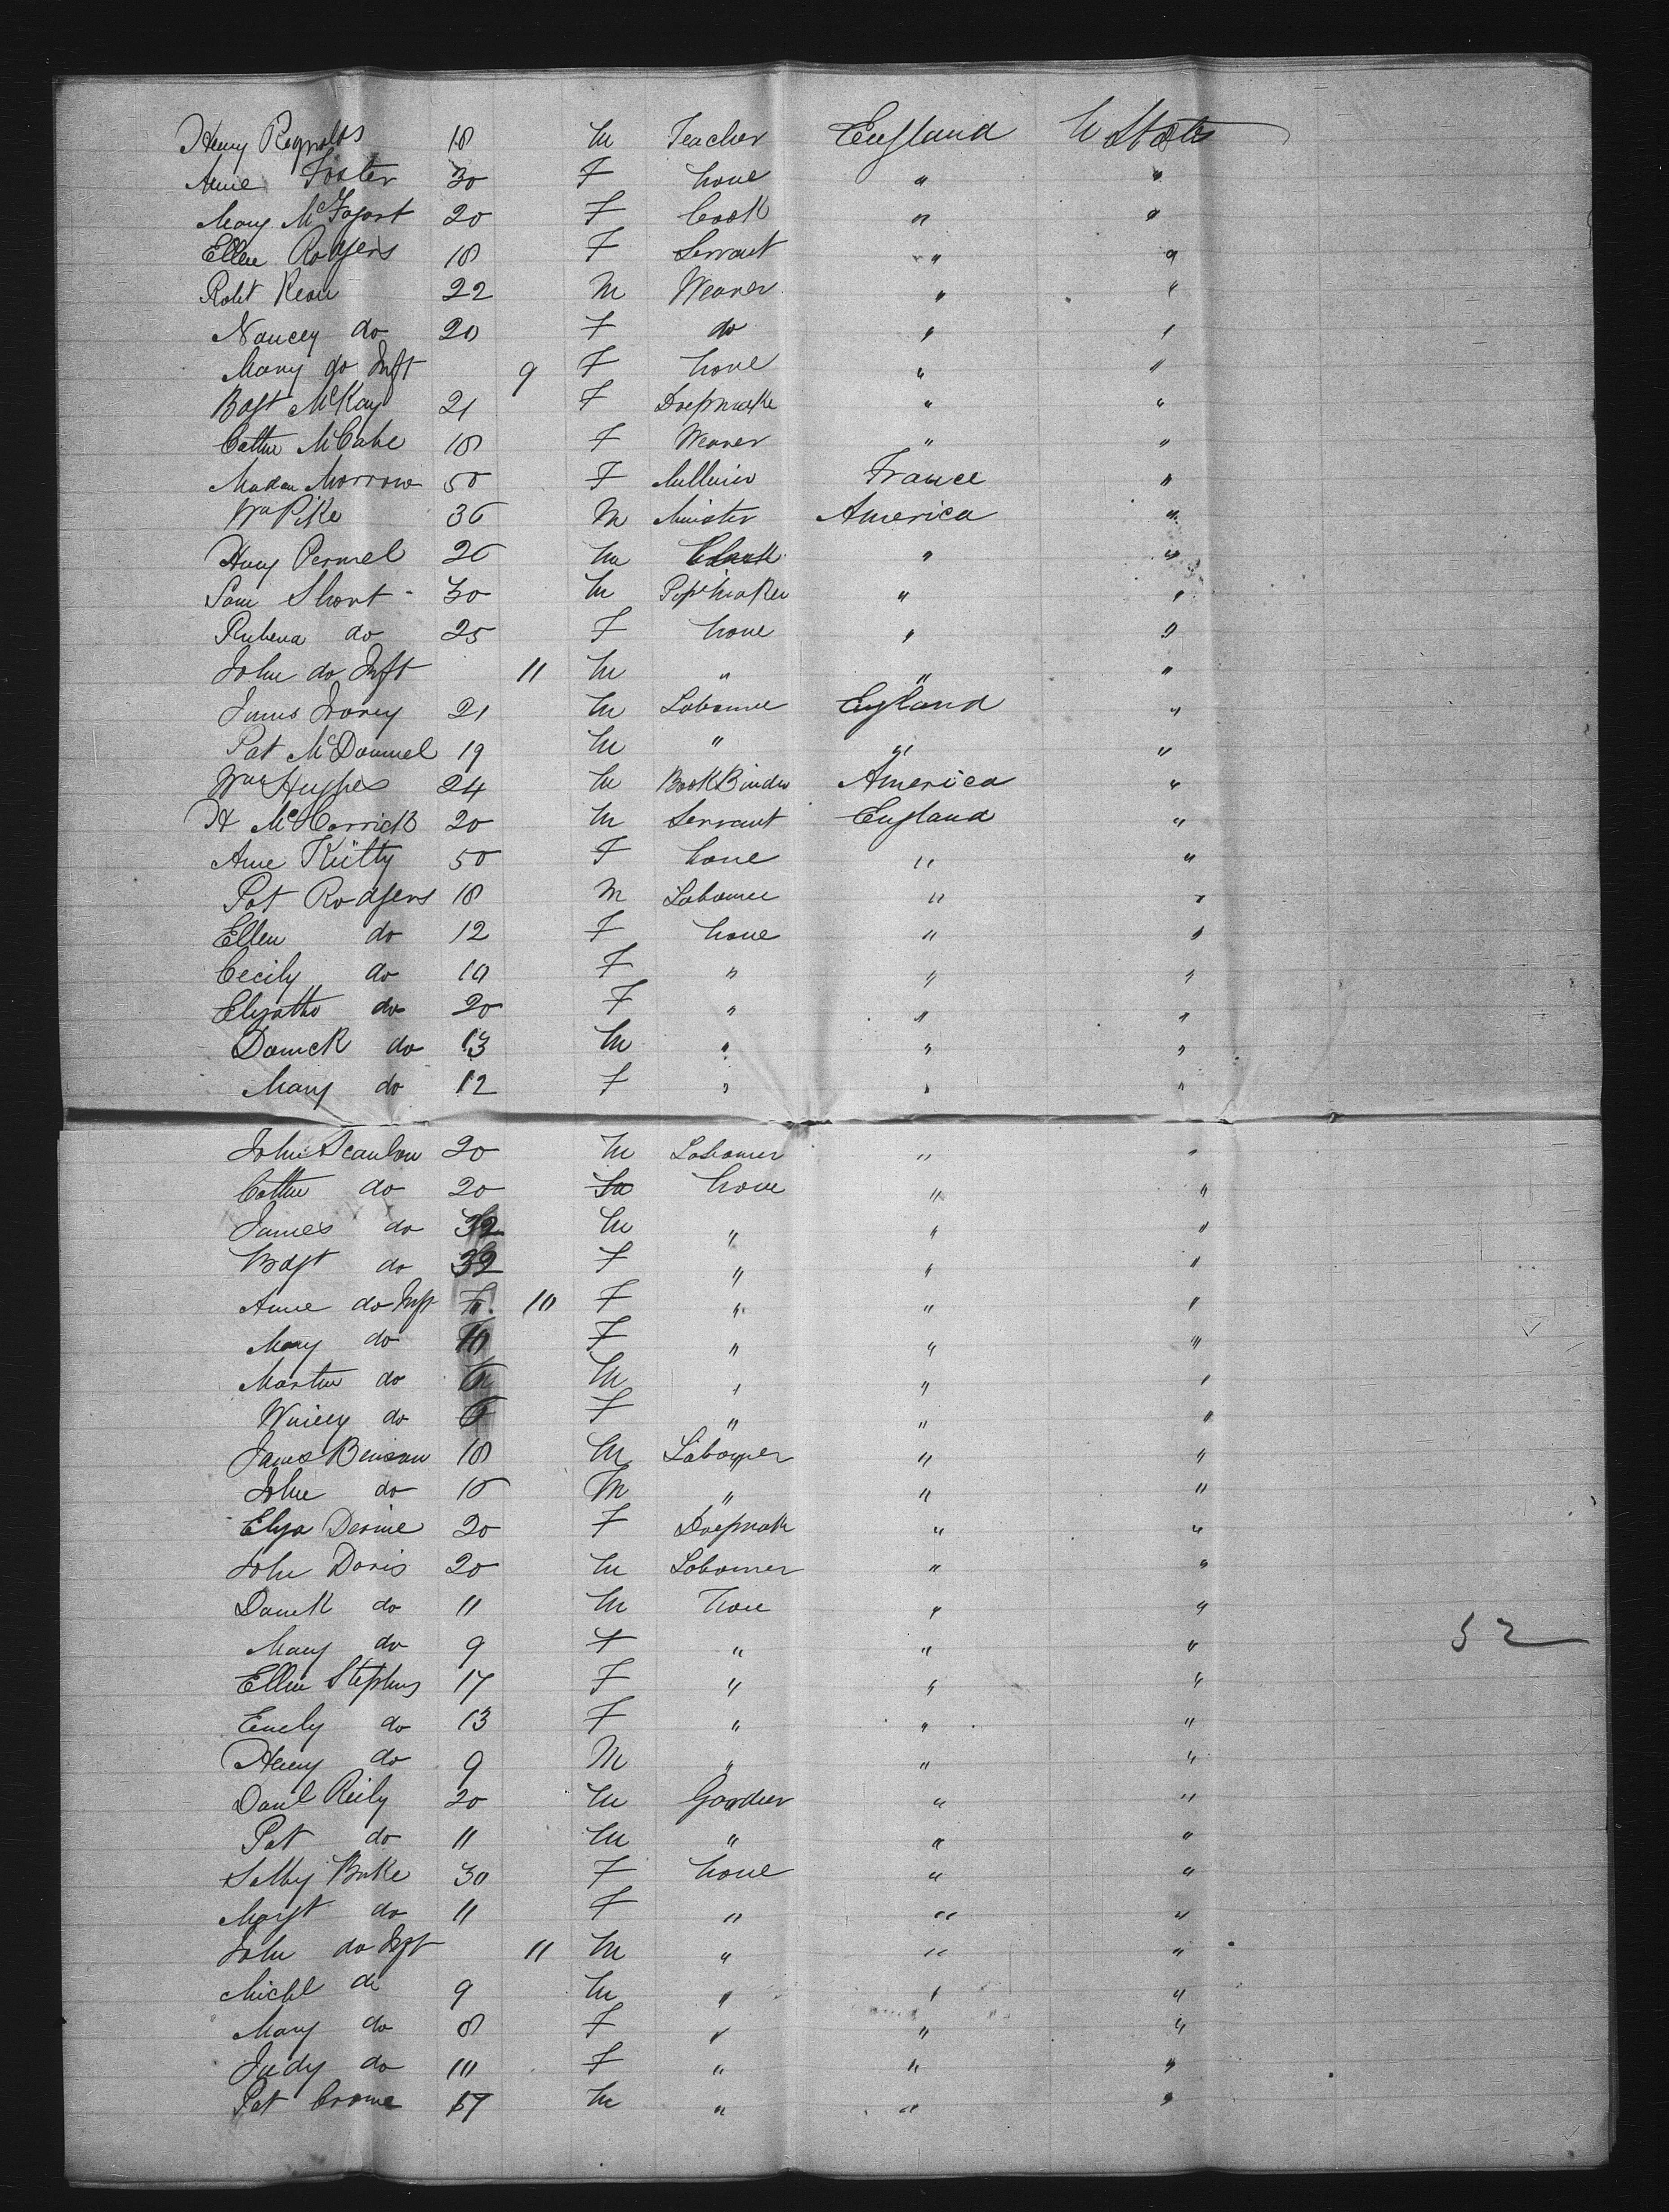 Henry Reynolds 18 M Teacher England U States
Anne Foster 30 F None " "
Mary McTagart 20 F Cook " "
Ellen Rodgers 18 F Servant " "
Robt Kean 22 M Weaver " "
Nancey do 20 F do " "
Mary do Inft 9 F None " "
Bgt McKay 21 F Dressmake " "
Cathe McCabe 18 F Weaver " "
Madau Morrow 50 F Milliner France "
Wm Pike 36 M Minister America "
Henry Permel 26 M Clerk " "
Sam Short 30 M Pipe Maker " "
Rubena do 25 F None " "
John do Inft 11 M " " "
James 21 M Labourer England "
Pat McDonnel 19 M " " "
Wm Hughes 24 M Book Binder America "
H McCorrick 20 M Servant England "
Anne Kitty 50 F None " "
Pat Rodgers 18 M Labourer " "
Ellen do 12 F None " "
Cecily do 10 F " " "
Elizabth do 20 F " " "
Domck do 13 M " " "
Mary do 12 F " " "
John Scanlon 20 M Labourer " "
Cathe do 20 M None " "
James do 32 M " " "
Bdgt do 32 F " " "
Anne do Inft 10 F " " "
Mary do F " " "
Martin do M " " "
Winiey do F " " "
James Benson 18 M Labourer " "
John do 16 M " " "
Eliza Devine 20 F Dressmak " "
John Davis 20 M Labourer " "
Domk do 11 M None " "
Mary do 9 F " " "
Ellen Stephens 17 F " " "
Emely do 13 F " " "
Henry do 9 M " " "
Danl Reily 20 M Gardner " "
Pat do 11 M " " "
Burke 30 F None " "
Margt do 11 F " " "
John do Inft 11 M " " "
Michl do 9 M " " "
Mary do 8 F " " "
Judy do 10 F " " "
Pat Crowe 17 M " " "
52